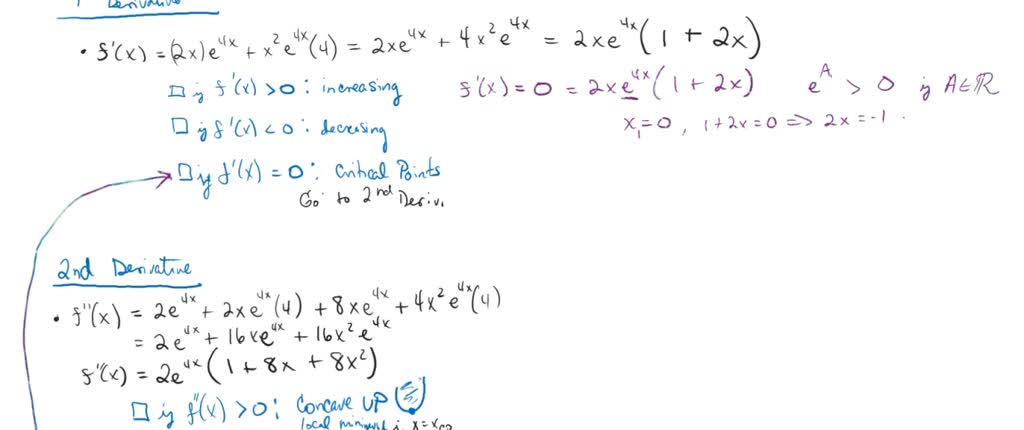 Derivative
• f'(x) = (2x)e^{4x} + x^2 e^{4x}(4) = 2xe^{4x} + 4x^2 e^{4x} = 2xe^{4x}(1 + 2x)
□ if f'(x) > 0 : increasing f'(x) = 0 = 2xe^{4x}(1 + 2x) e^A > 0 if A∈ℝ
□ if f'(x) < 0 : decreasing x_1 = 0 , 1+2x = 0 ⇒ 2x = -1 .
□ if f'(x) = 0 : Critical Points
Go to 2nd Deriv.
2nd Derivative
• f''(x) = 2e^{4x} + 2xe^{4x}(4) + 8xe^{4x} + 4x^2 e^{4x}(4)
= 2e^{4x} + 16xe^{4x} + 16x^2 e^{4x}
f''(x) = 2e^{4x}(1 + 8x + 8x^2)
□ if f''(x) > 0 : Concave UP
local x = x